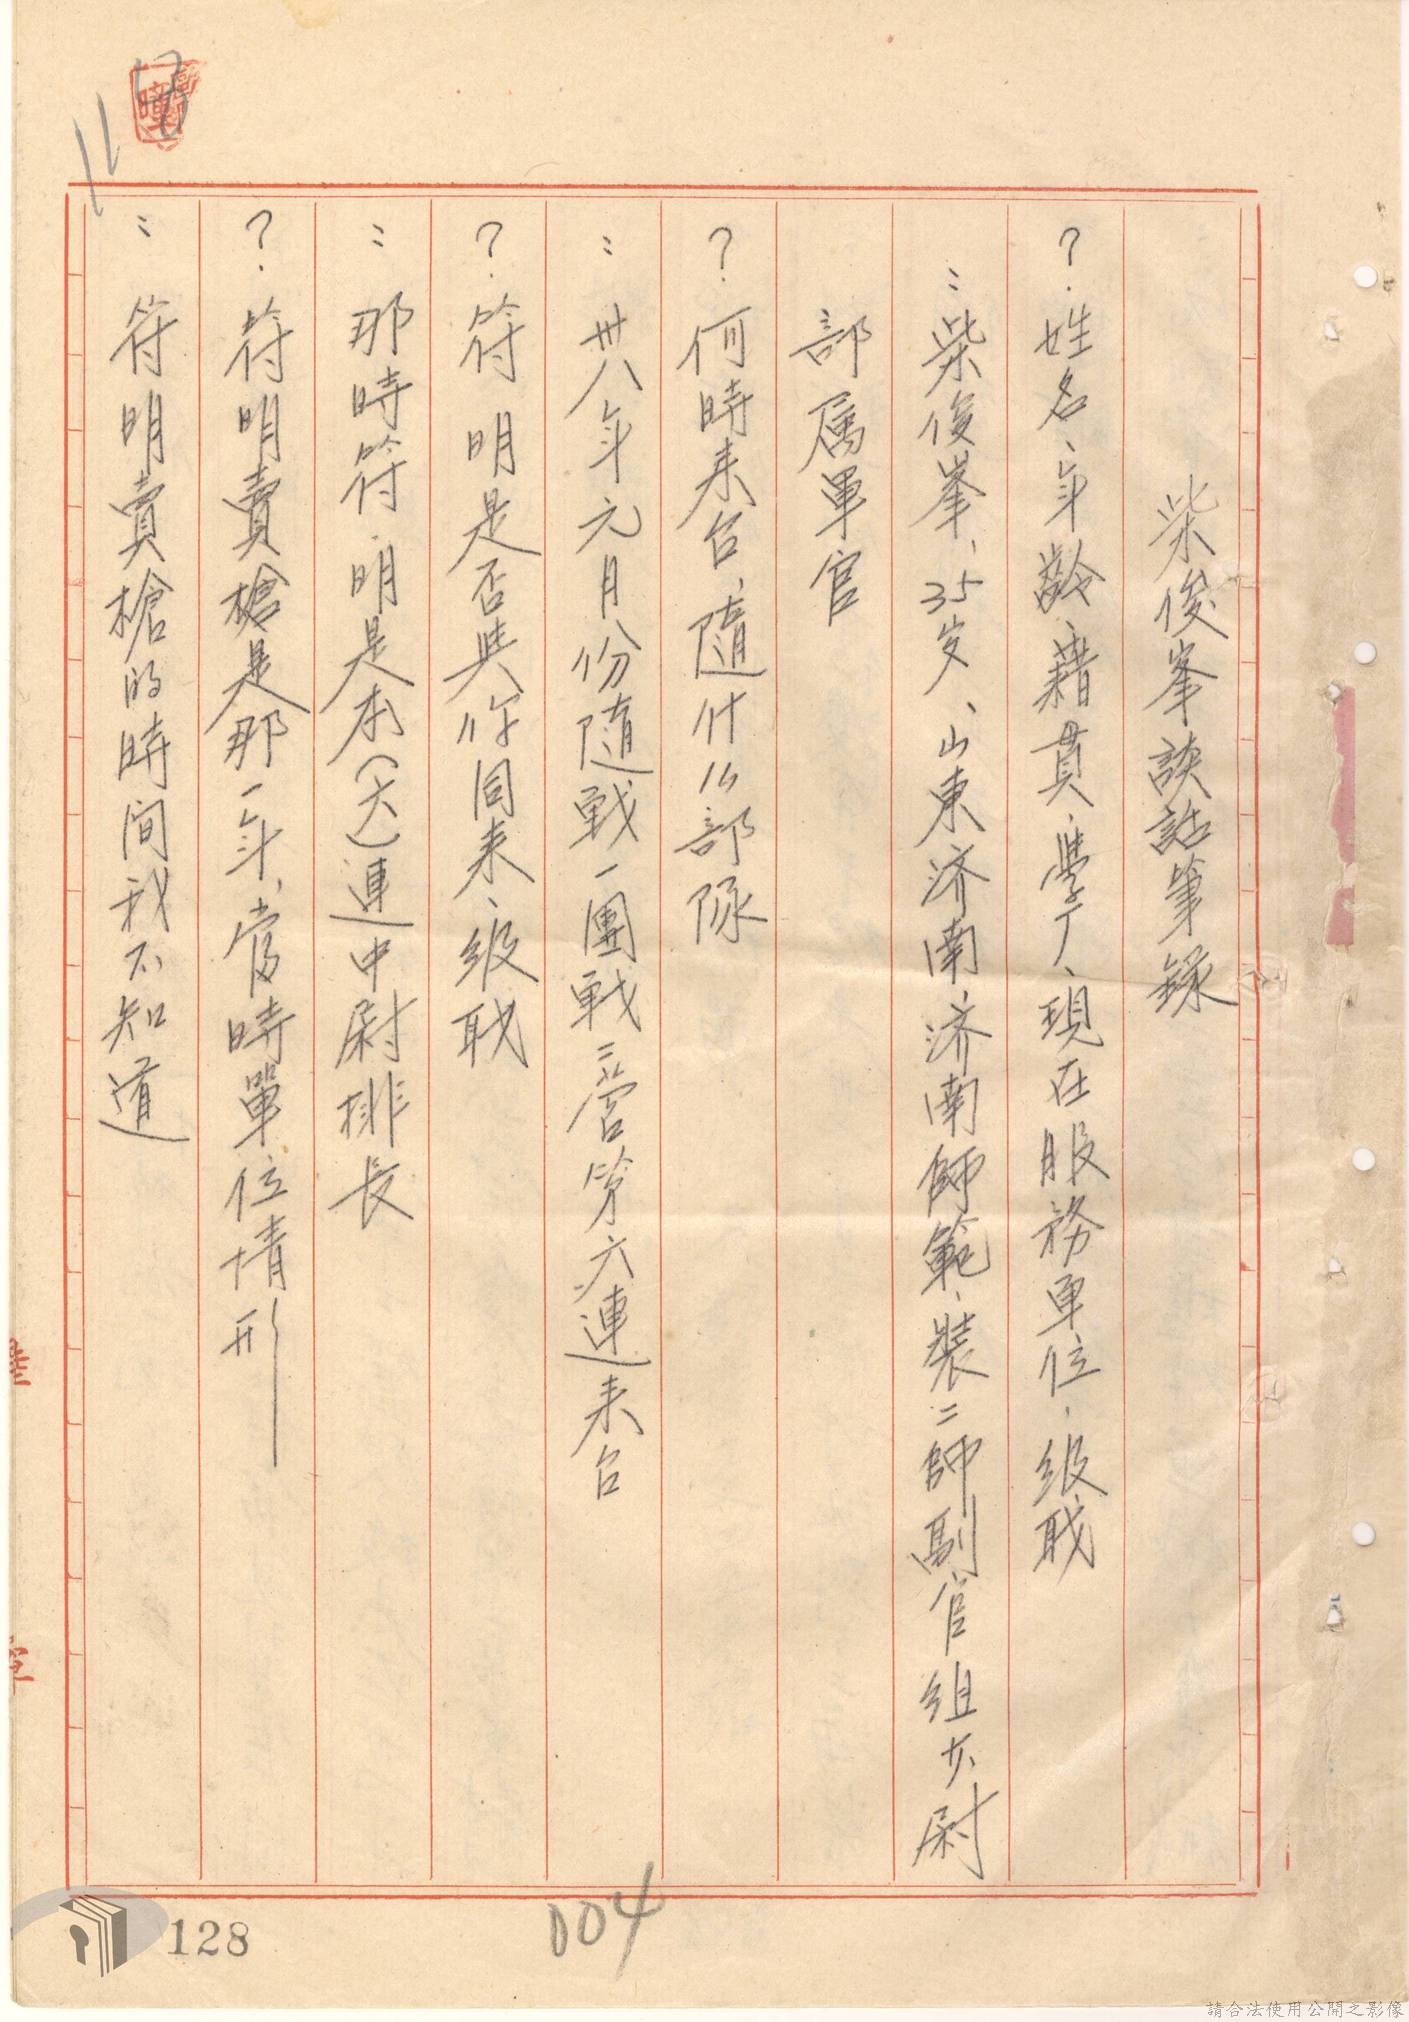 柴俊峯談話筆錄
?.姓名、年齡、藉貫、學厂、現在服務單位、級職
:柴俊峯、35岁、山東济南、济南師範、裝二師副官組少尉
部属軍官
?.何時来台、隨什么部隊
:卅八年元月份隨戰一團戰二营第六連来台
?.符明是否與你同来、級職
:那時符明是本(六)連中尉排長
?.符明賣槍是那一年、當時單位情形
:符明賣槍的時间我不知道
004
128
請合法使用公開之影像